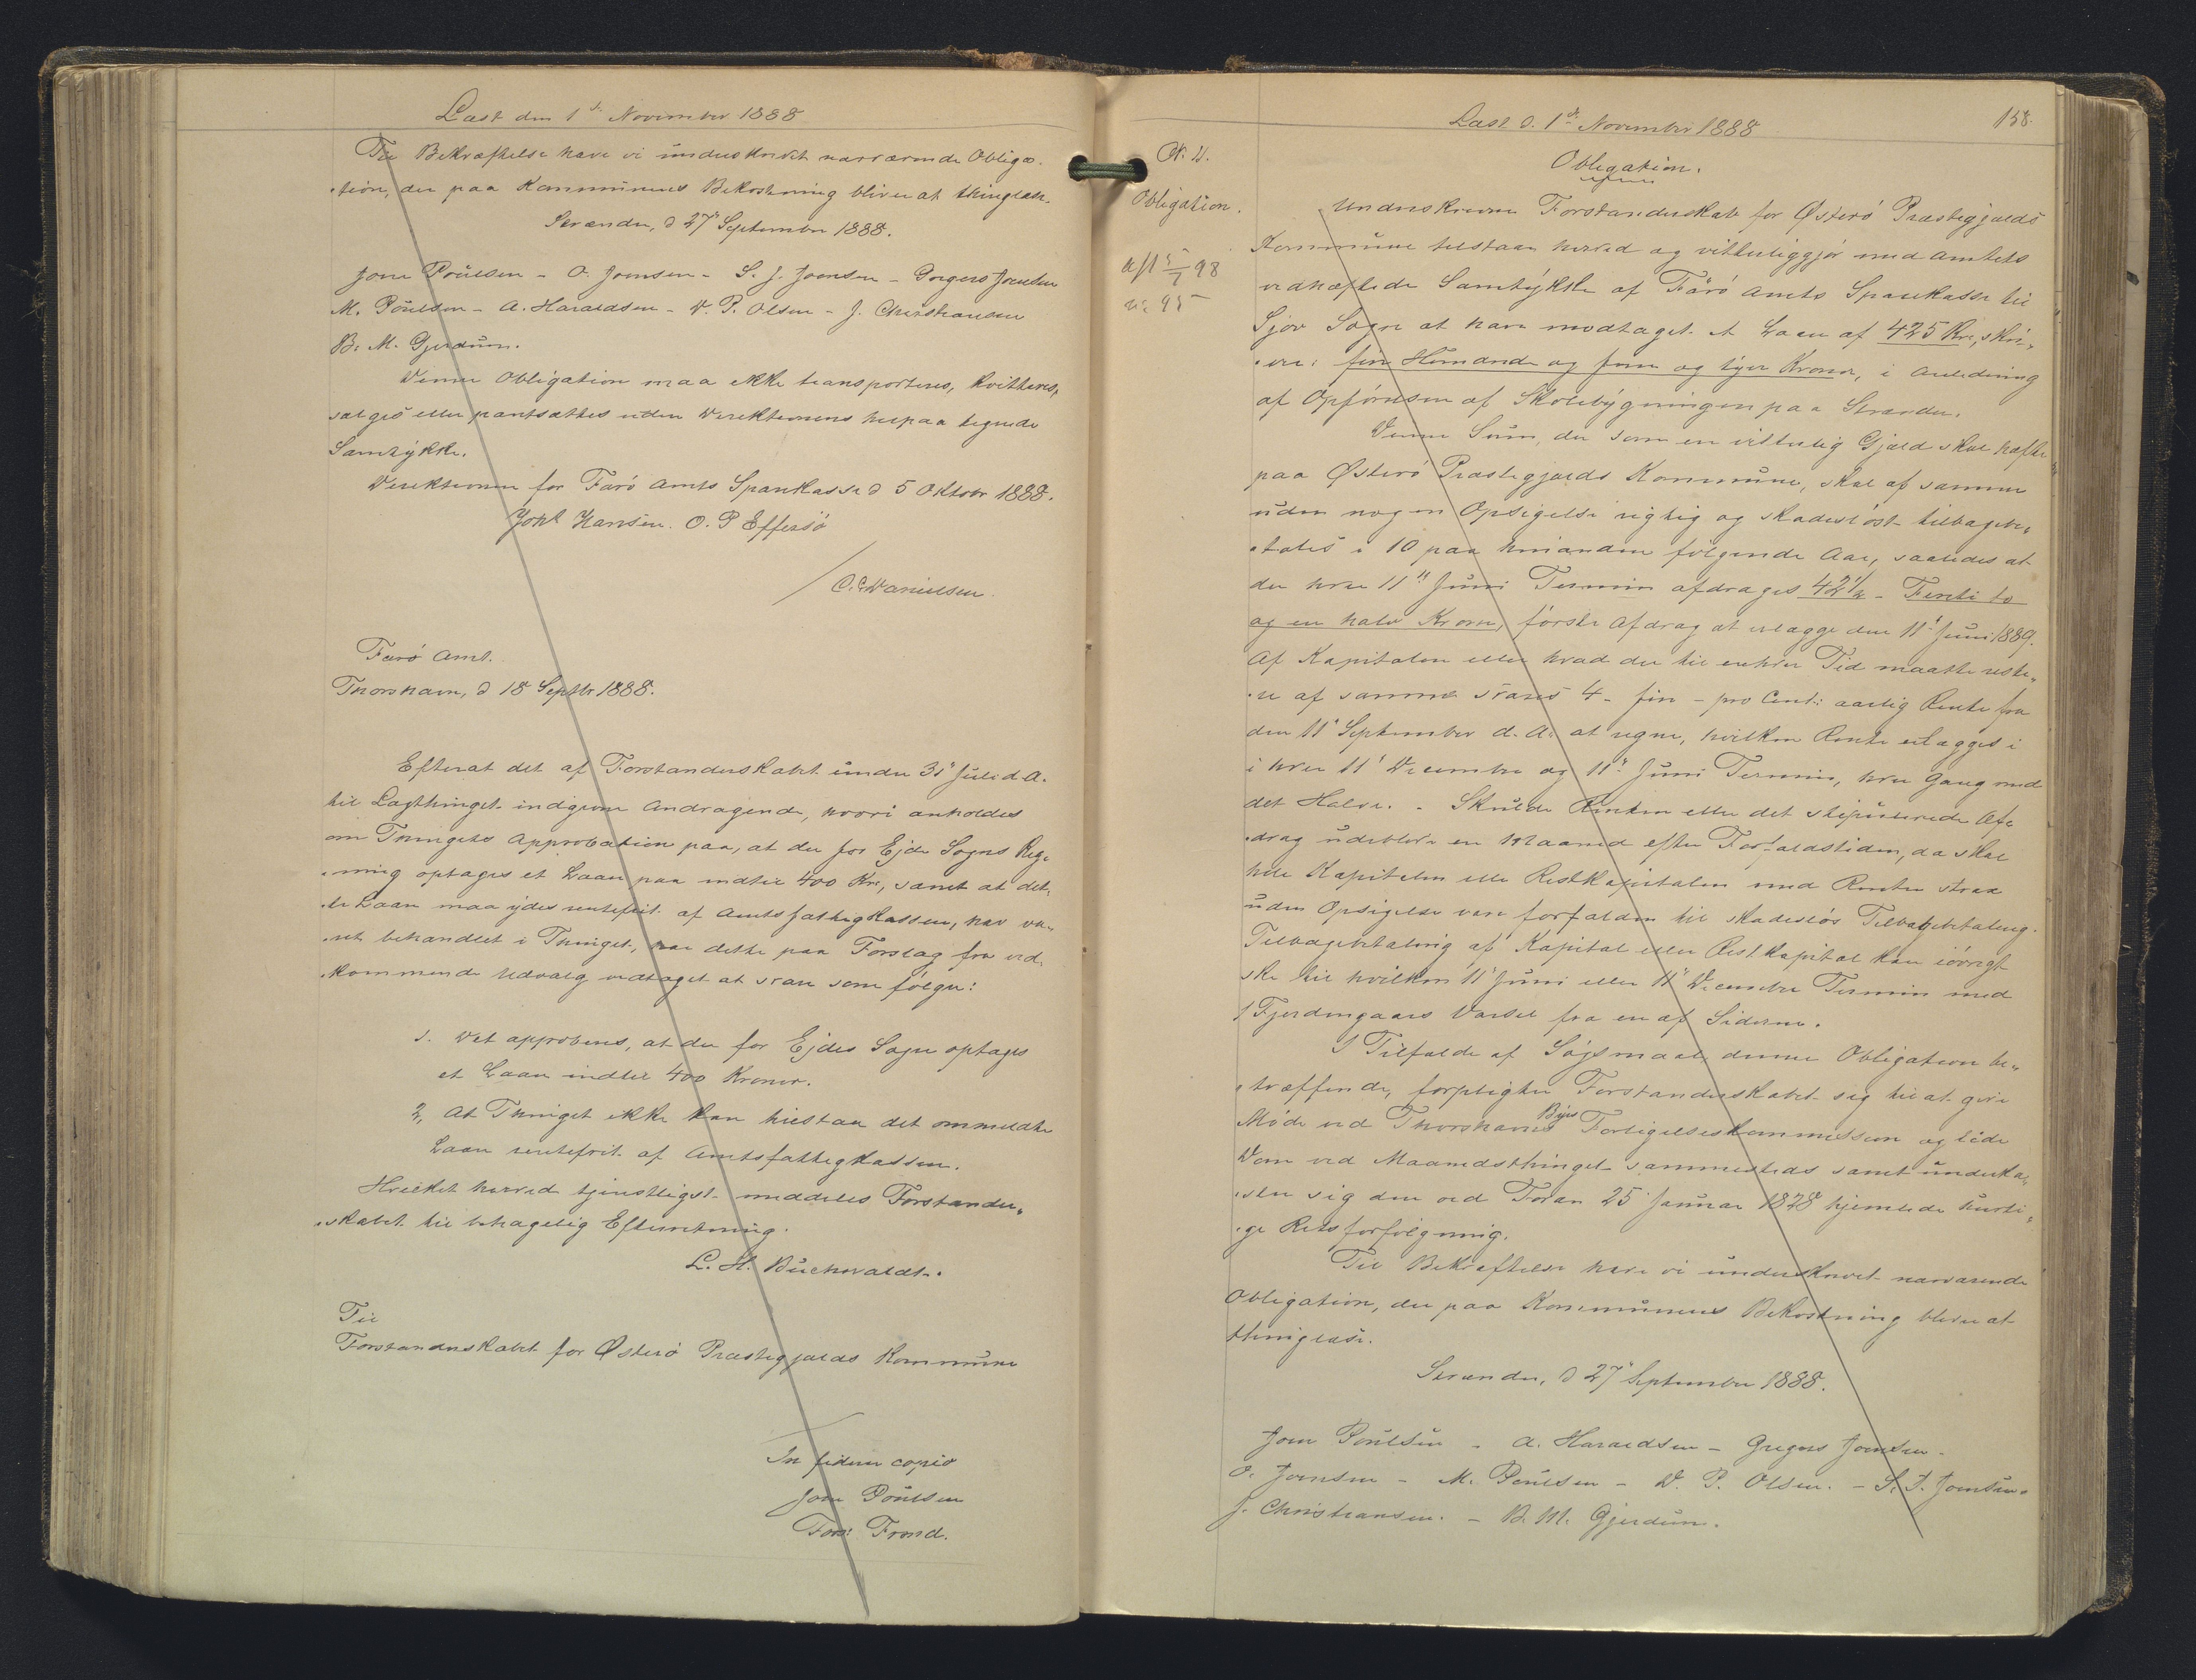 Læst den 1ste November 1888
Til Bekræftelse have vi underskrevet nærværende Obliga-
tion, der paa Kommunens Bekostning bliver at thinglæse.
Strænder, d 27' September 1888.
Joen Poulsen - O. Joensen - S. J. Joensen - Gregers Joensen
M. Poulsen - A. Haraldsen - D. P. Olsen - J. Christiansen
B. M. Gjerdum.
Denne Obligation maa ikke transporteres, kvitteres,
sælges eller pantsættes uden Direktionens herpaa tegnede
Samtykke.
Direktionen for Færø Amts Sparekasse d 5 Oktobr 1888.
Johs Hansen. O. P Effersö
/ C. C. Danielsen.
Færö Amt.
Thorshavn, d 18 Septbr 1888.
Efterat det af Forstanderskabet under 31' Juli d. A.
til Lagthinget indgivne Andragende, hvori anholdes
om Thingets Approbation paa, at der for Ejde Sogns Reg-
ning optages et Laan paa indtil 400 Kr, samt at det-
te Laan maa ydes rentefrit af Amtsfattigkassen, har væ-
ret behandlet i Thinget, har dette paa Forslag fra ved-
kommende Udvalg vedtaget at svare som følger:
1. Det approberes, at der for Ejdes Sogn optages
et Laan indtil 400 Kroner.
2, At Thinget ikke kan tilstaa det ommeldte
Laan rentefrit af Amtsfattigkassen.
Hvilket herved tjenstligst meddeles Forstander-
skabet til behagelig Efterretning.
L. H. Buchwaldt.
Til
Forstanderskabet for Østerö Præstegjælds Kommune
In fidem copiæ
Joen Poulsen
Fors: Frmd.
Læst d. 1ste November 1888
158.
N. 4.
Obligation.
Afl 5/7 98
nr 95
Obligation.
Underskrevne Forstanderskab for Østerö Præstegjælds
Kommune tilstaar herved og vitterliggjør med Amtets
vedhæftede Samtykke af Færö Amts Sparekasse til
Sjov Sogn at have modtaget et Laan af 425 Kr, skri-
ver: fire Hundrede og fem og tyve Kroner, i Anledning
af Opførelsen af Skolebygningen paa Strænder.
Denne Sum, der som en vitterlig Gjæld skal hæfte
paa Østerö Præstegjælds Kommune, skal af samme
uden nogen Opsigelse rigtig og skadeslöst tilbagebe-
tales i 10 paa hinanden følgende Aar, saaledes at
der hver 11' Juni Termin afdrages 42 1/2 - Firti to
og en halv Krone, förste Afdrag at erlægge den 11' Juni 1889.
Af Kapitalen eller hvad der til enhver Tid maatte reste-
re af samme svares 4 - fire - pro Cent: aarlig Rente fra
den 11' September d. A. at regne, hvilken Rente erlægges i
i hver 11' December og 11' Juni Termin, hver Gang med
det Halve. - Skulde Renten eller det stipulerede Af-
drag udeblive en Maaned efter Forfaldstiden, da skal
hele Kapitalen eller Restkapitalen med Renter strax
uden Opsigelse være forfalden til skadeslös Tilbagebetaling.
Tilbagebetaling af Kapital eller Restkapital kan iövrigt
ske til hvilken 11' Juni eller 11' December Termin med
1 Fjerdingaars Varsel fra en af Siderne.
I Tilfælde af Søgsmaal denne Obligation be-
træffende, forpligter Forstanderskabet sig til at give
Møde ved Thorshavns Byes Forligelseskommission og lide
Dom ved Maanedsthinget sammesteds samt underka-
ster sig den ved Fordn 25 Januar 1828 hjemlede hurti-
ge Retsforfølgning.
Til Bekræftelse have vi underskrevet nærværende
Obligation, der paa Kommunens Bekostning bliver at
thinglæse.
Strænder, d 27' September 1888.
Joen Poulsen - A. Haraldsen - Gregers Joensen -
O. Joensen - M. Poulsen - D. P. Olsen. - S. J. Joensen.
J. Christiansen. - B. M. Gjerdum.